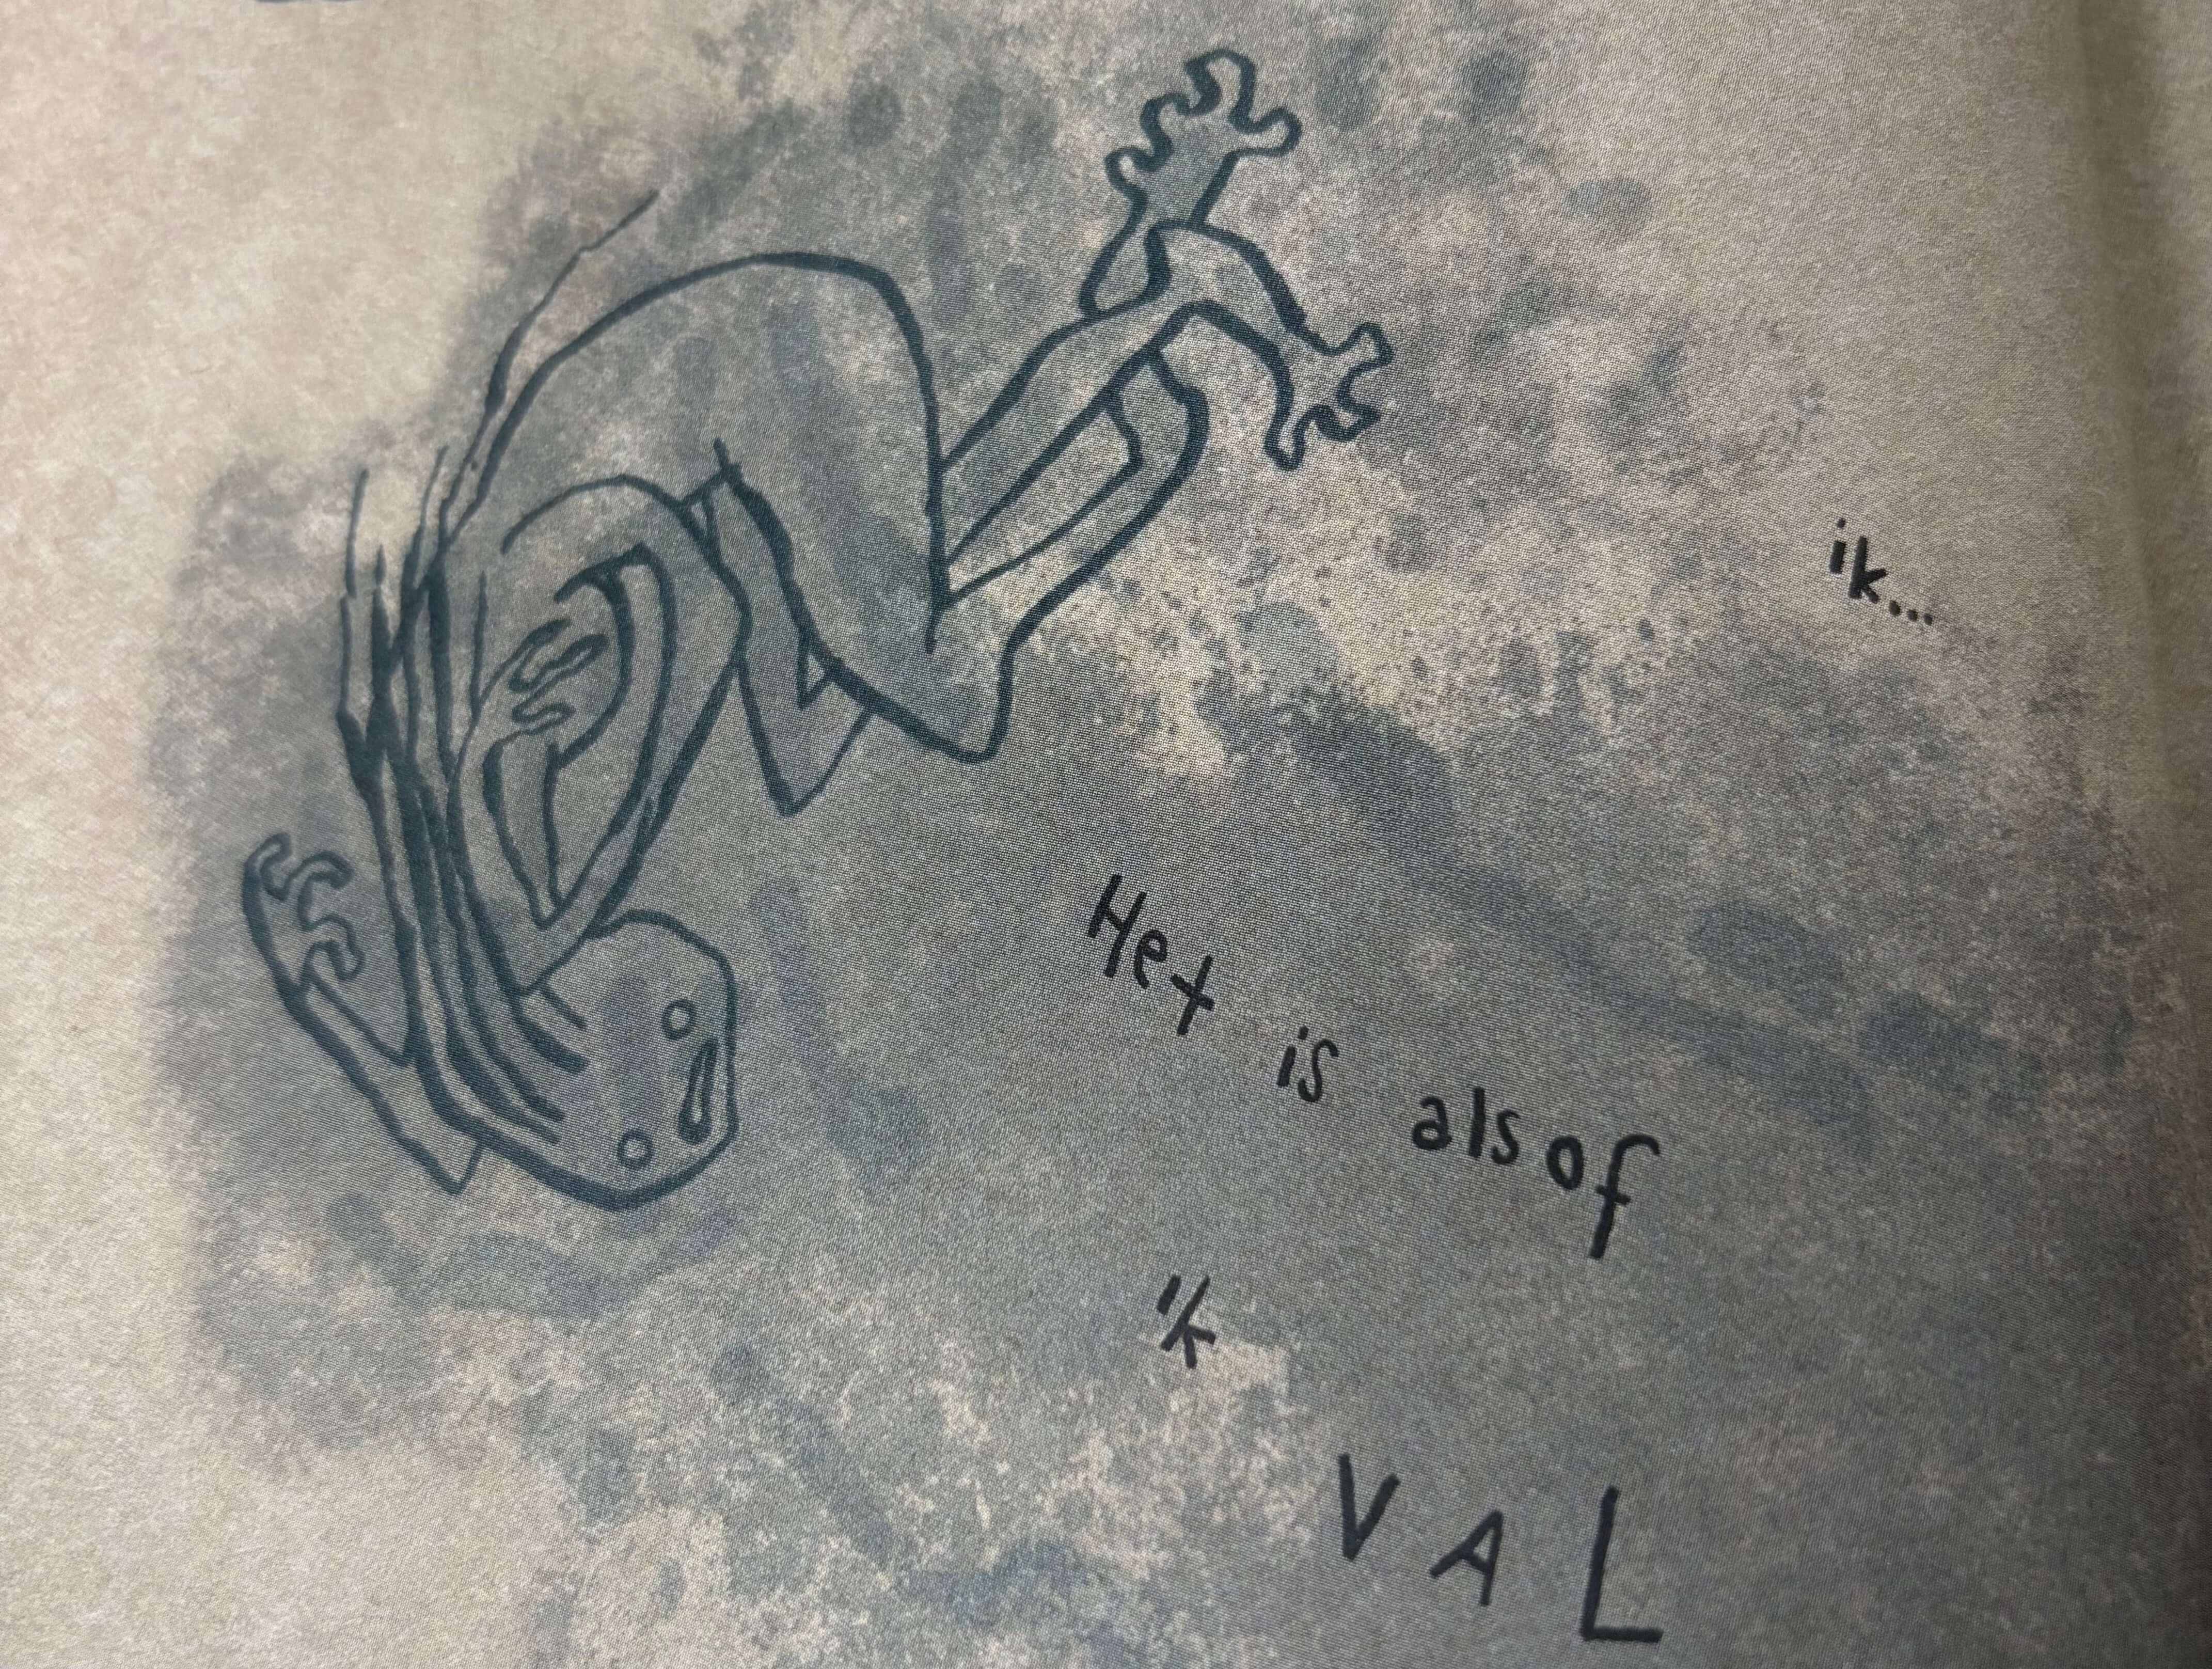 ik...
Het is alsof
ik
VAL